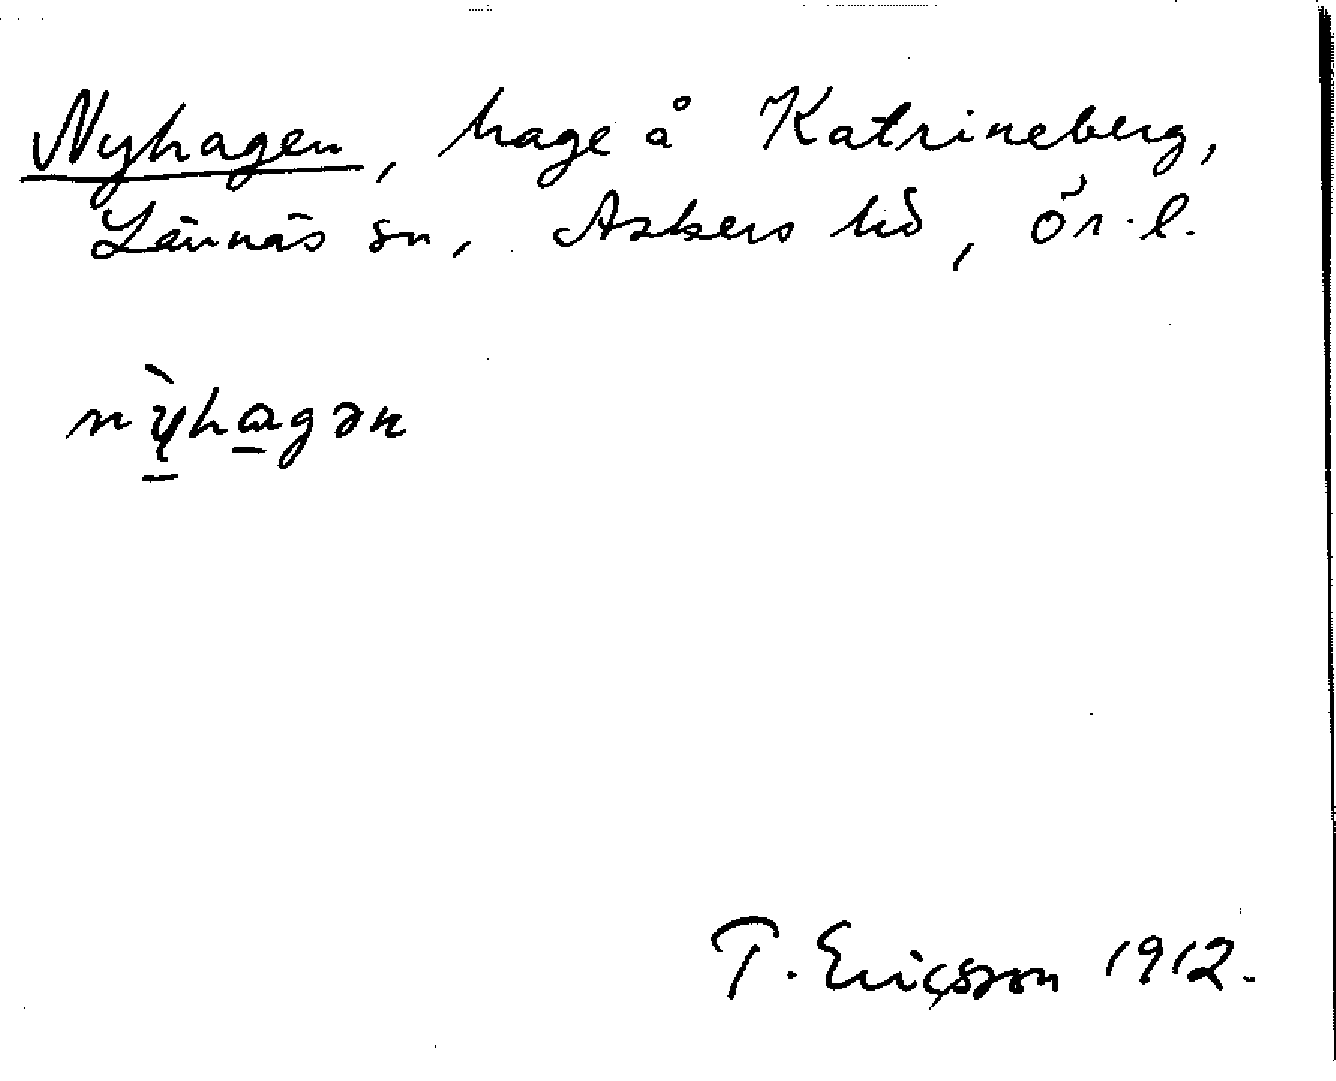 Nyhagen, hage å Katrineberg,
Lännäs sn, Askers hd, Ör. l.
nỳ̱hα̱gən
T. Ericsson 1912.